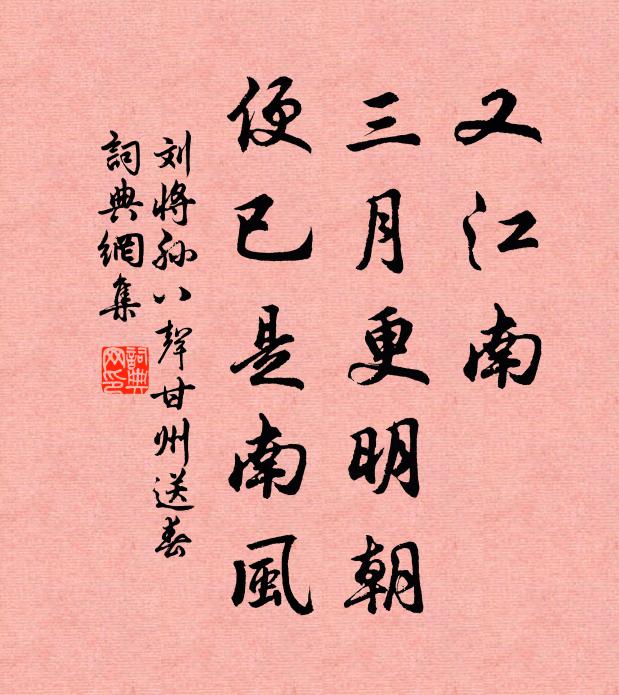 又江南
三月更明朝
便已是南風
刘将孙八聲甘州送春
詞典網集
詞典網印